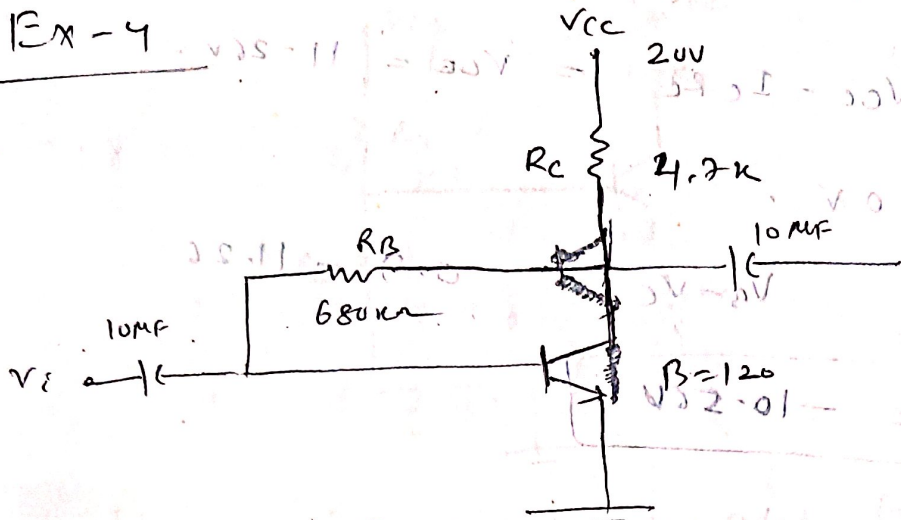 Ex-4
VCC
20V
RC
4.7K
10MF
RB
680KΩ
10MF
Vi
B=120